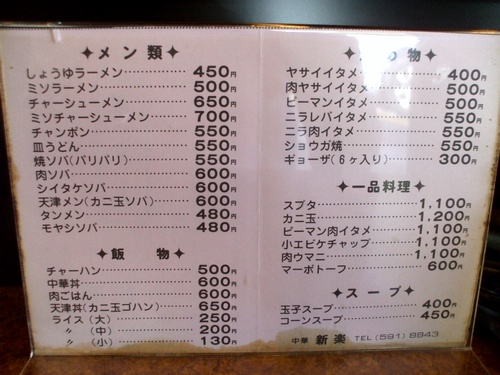 ✦メン類✦
しょうゆラーメン 450円
ミソラーメン 500円
チャーシューメン 650円
ミソチャーシューメン 700円
チャンポン 550円
皿うどん 550円
焼ソバ(パリパリ) 550円
肉ソバ 600円
シイタケソバ 600円
天津メン(カニ玉ソバ) 600円
タンメン 480円
モヤシソバ 480円
✦飯物✦
チャーハン 500円
中華丼 600円
肉ごはん 600円
天津丼(カニ玉ゴハン) 650円
ライス(大) 250円
〃(中) 200円
〃(小) 130円
め物✦
ヤサイイタメ 400円
肉ヤサイイタメ 500円
ピーマンイタメ 500円
ニラレバイタメ 550円
ニラ肉イタメ 550円
ショウガ焼 550円
ギョーザ(6ヶ入り) 300円
✦一品料理✦
スブタ 1,100円
カニ玉 1,200円
ピーマン肉イタメ 1,100円
小エビケチャップ 1,100円
肉ウマニ 1,100円
マーボトーフ 600円
✦スープ✦
玉子スープ 400円
コーンスープ 450円
中華 新楽 TEL (591) 8843